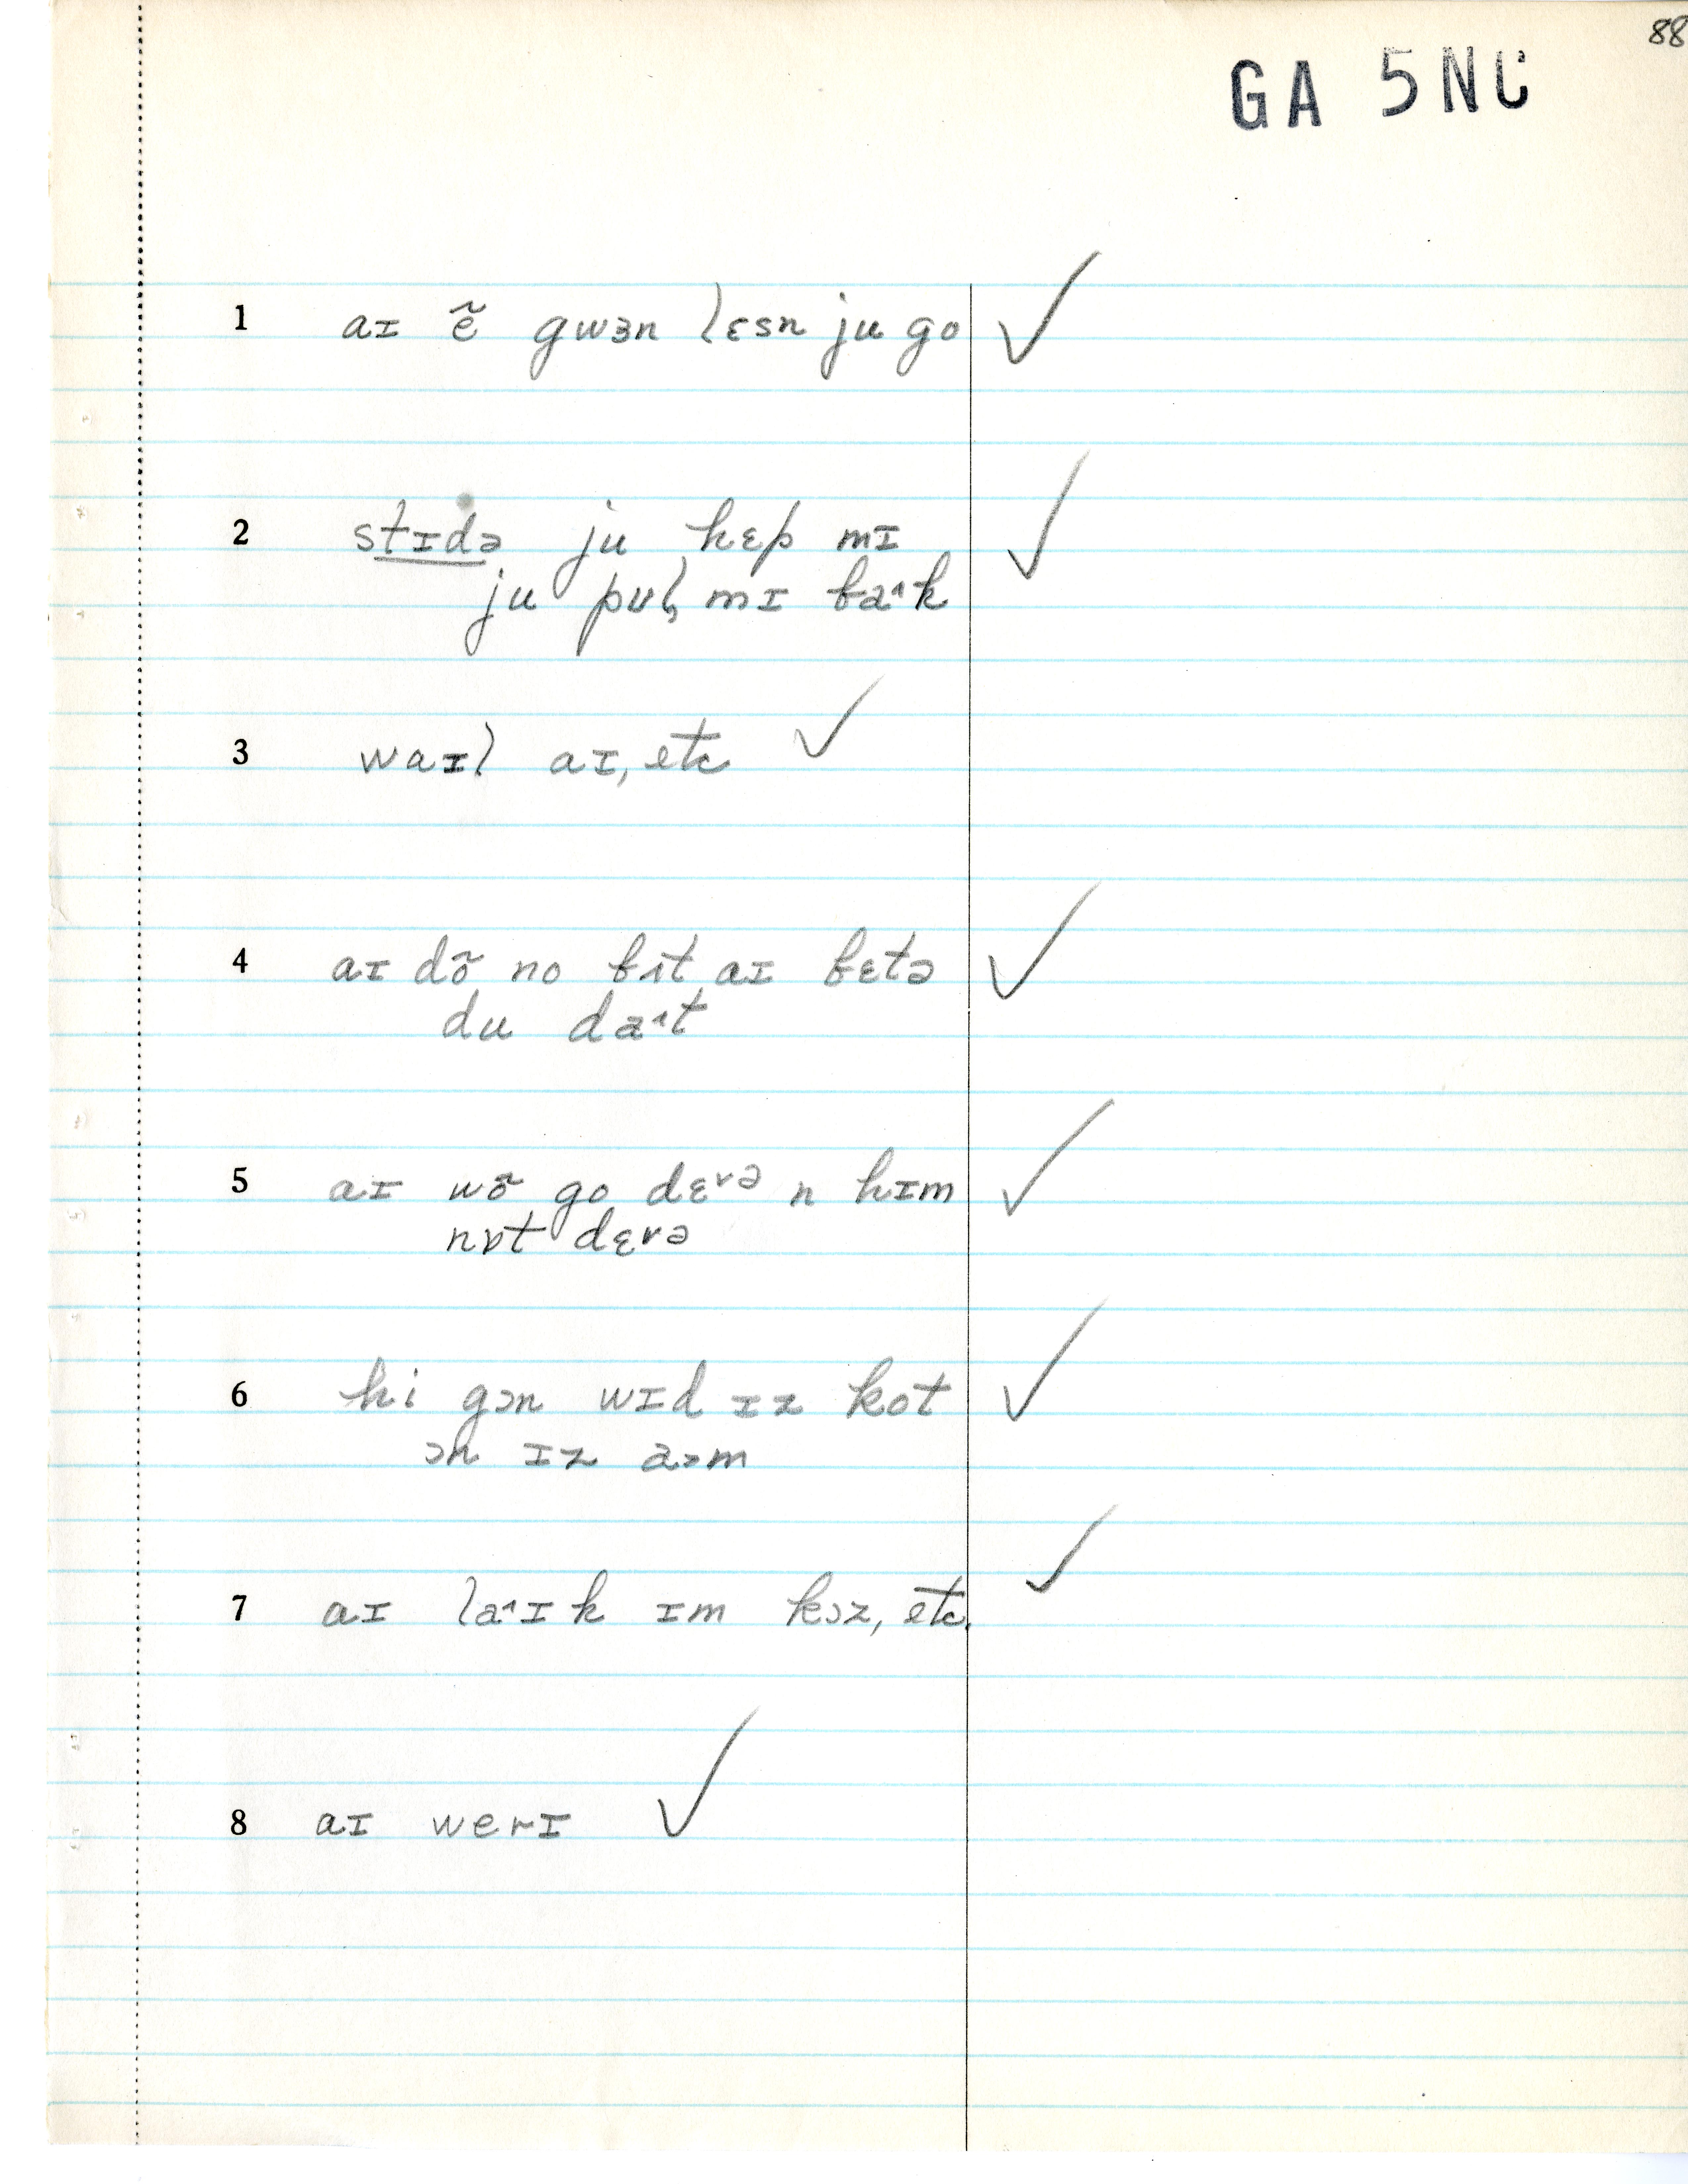 88
GA 5NC
1 aɪ ẽ gwɜn lɛsn ju go ✓
2 stɪdə ju hɛp mɪ ✓
ju pʊl̥ mɪ ba˄k
3 waɪl aɪ, etc ✓
4 aɪ dõ no bɪt aɪ bɛtə ✓
du da˄t
5 aɪ wõ go dɛ˅ə n hɪm ✓
nɒt dɛ˅ə
6 hi gɔn wɪd ɪz kot ✓
ɔn ɪz aəm
7 aɪ la˄ɪk ɪm kɔz, etc. ✓
8 aɪ werɪ ✓